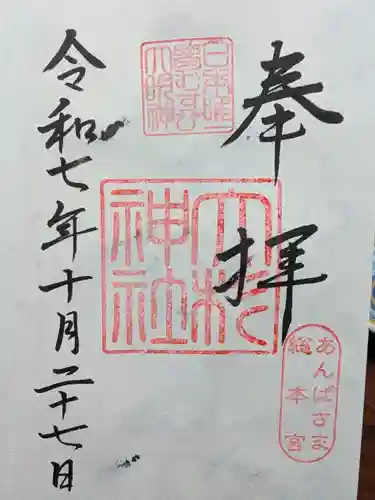 奉拝
日本唯一
大杉
神社
あんばさま
総本宮
令和七年十月二十七日